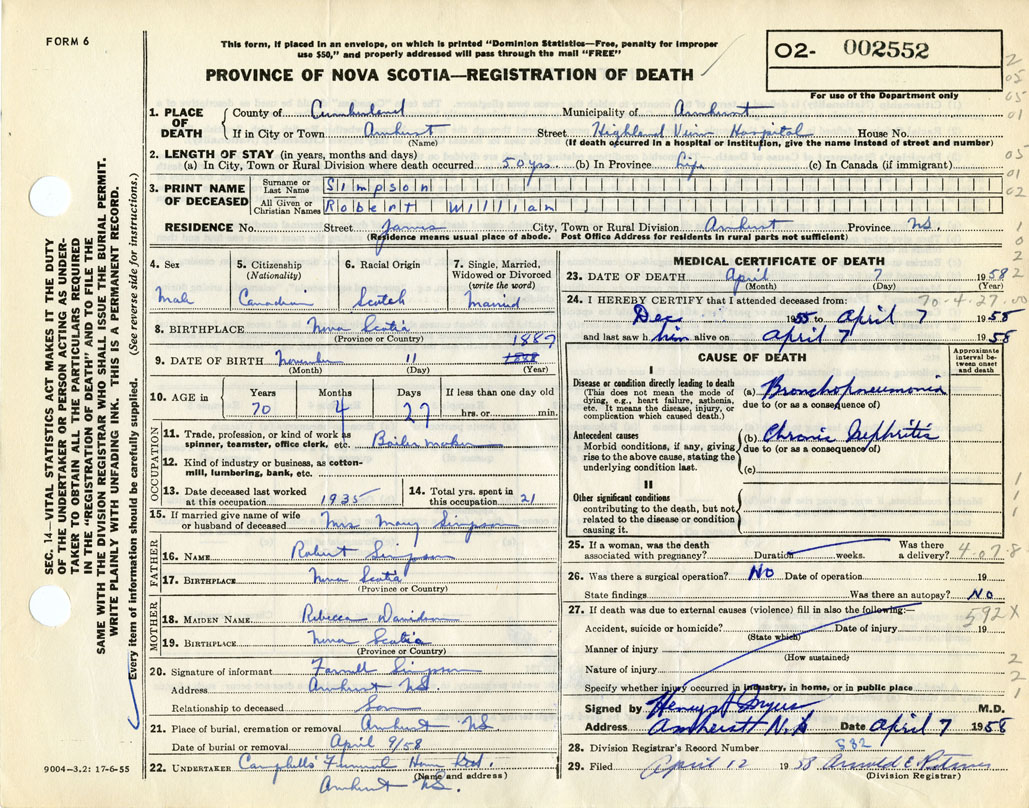 FORM 6
This form, if placed in an envelope, on which is printed "Dominion Statistics—Free, penalty for improper
use $50," and properly addressed will pass through the mail "FREE"
PROVINCE OF NOVA SCOTIA—REGISTRATION OF DEATH
02- 002552
For use of the Department only
1. PLACE OF DEATH County of Cumberland Municipality of Amherst
If in City or Town Amherst Street Highland View Hospital House No.
(Name) (If death occurred in a hospital or institution, give the name instead of street and number)
2. LENGTH OF STAY (in years, months and days)
(a) In City, Town or Rural Division where death occurred 50 yrs (b) In Province Life (c) In Canada (if immigrant)
3. PRINT NAME OF DECEASED
Surname or Last Name Simpson
All Given or Christian Names Robert William
RESIDENCE No. Street James City, Town or Rural Division Amherst Province NS.
(Residence means usual place of abode. Post Office Address for residents in rural parts not sufficient)
4. Sex
Male
5. Citizenship
(Nationality)
Canadian
6. Racial Origin
Scotch
7. Single, Married,
Widowed or Divorced
(write the word)
Married
8. BIRTHPLACE Nova Scotia
(Province or Country)
1887
9. DATE OF BIRTH November 11
(Month) (Day) (Year)
10. AGE in Years Months Days If less than one day old
70 4 27 hrs. or min.
OCCUPATION
11. Trade, profession, or kind of work as
spinner, teamster, office clerk, etc. Boiler maker
12. Kind of industry or business, as cotton-
mill, lumbering, bank, etc.
13. Date deceased last worked
at this occupation 1935
14. Total yrs. spent in
this occupation 21
15. If married give name of wife
or husband of deceased Mrs Mary Simpson
FATHER
16. NAME Robert Simpson
17. BIRTHPLACE Nova Scotia
MOTHER
18. MAIDEN NAME Rebecca Davidson
19. BIRTHPLACE Nova Scotia
(Province or Country)
20. Signature of informant Farrell Simpson
Address Amherst NS.
Relationship to deceased Son
21. Place of burial, cremation or removal Amherst NS
Date of burial or removal April 9/58
22. UNDERTAKER Campbells' Funeral Home Ltd.
(Name and address)
Amherst NS.
9004—3.2: 17-6-55
MEDICAL CERTIFICATE OF DEATH
23. DATE OF DEATH April 7 1958
(Month) (Day)
70-4-27-00
24. I HEREBY CERTIFY that I attended deceased from:
Dec 1955 to April 7 1958
and last saw him alive on April 7 1958
CAUSE OF DEATH
Approximate
interval be-
tween onset
and death
I
Disease or condition directly leading to death
(This does not mean the mode of
dying, e.g., heart failure, asthenia,
etc. It means the disease, injury, or
complication which caused death.)
(a) Bronchopneumonia
due to (or as a consequence of)
Antecedent causes
Morbid conditions, if any, giving
rise to the above cause, stating the
underlying condition last.
(b) Chronic Nephritis
due to (or as a consequence of)
(c)
II
Other significant conditions
contributing to the death, but not
related to the disease or condition
causing it.
25. If a woman, was the death
associated with pregnancy? Duration weeks. Was there
a delivery?
4-07-8
26. Was there a surgical operation? No Date of operation 19
State findings Was there an autopsy? No
27. If death was due to external causes (violence) fill in also the following:—
592X
Accident, suicide or homicide? Date of injury 19
(State which)
Manner of injury
(How sustained)
Nature of injury
Specify whether injury occurred in industry, in home, or in public place
Signed by M.D.
Address Amherst N.S Date April 7 1958
28. Division Registrar's Record Number 582
29. Filed April 12 1958 Arnold C
(Division Registrar)
SEC. 14—VITAL STATISTICS ACT MAKES IT THE DUTY
OF THE UNDERTAKER OR PERSON ACTING AS UNDER-
TAKER TO OBTAIN ALL THE PARTICULARS REQUIRED
IN THE "REGISTRATION OF DEATH" AND TO FILE THE
SAME WITH THE DIVISION REGISTRAR WHO SHALL ISSUE THE BURIAL PERMIT.
WRITE PLAINLY WITH UNFADING INK. THIS IS A PERMANENT RECORD.
Every item of information should be carefully supplied. (See reverse side for instructions.)
2
05
05
01
05
01
02
1
0
2
2
1
1
1
2
2
1